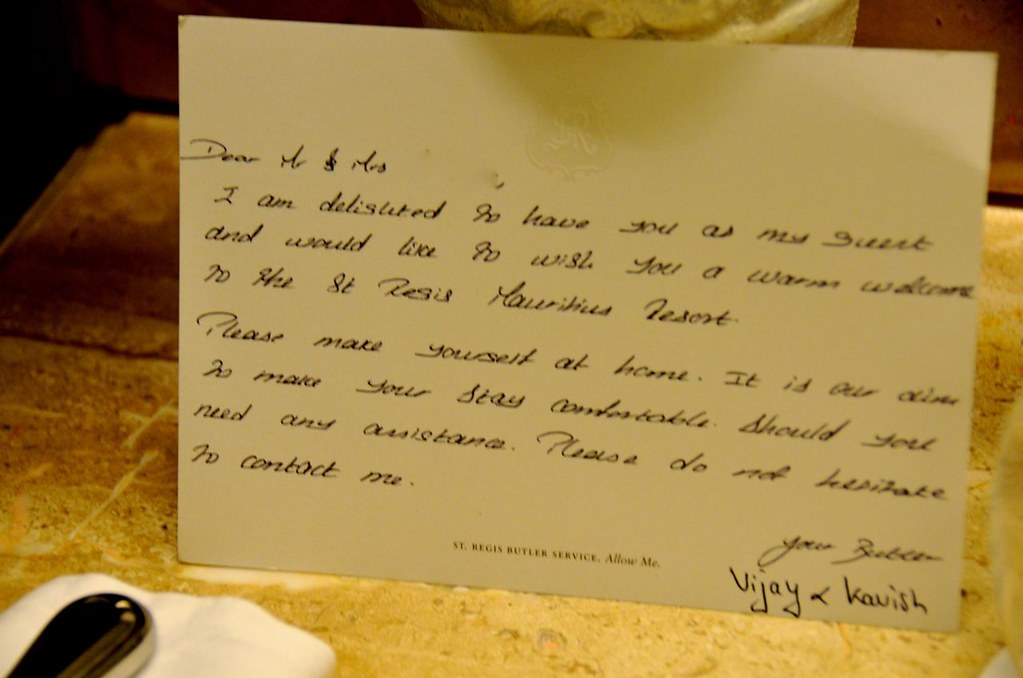 Dear Mr & Mrs
I am delighted to have you as my guest
and would like to wish you a warm welcome
to the St Regis Mauritius Resort.
Please make yourself at home. It is our aim
to make your stay comfortable. Should you
need any assistance. Please do not hesitate
to contact me.
Your Butler
Vijay & Kavish
ST. REGIS BUTLER SERVICE. Allow Me.